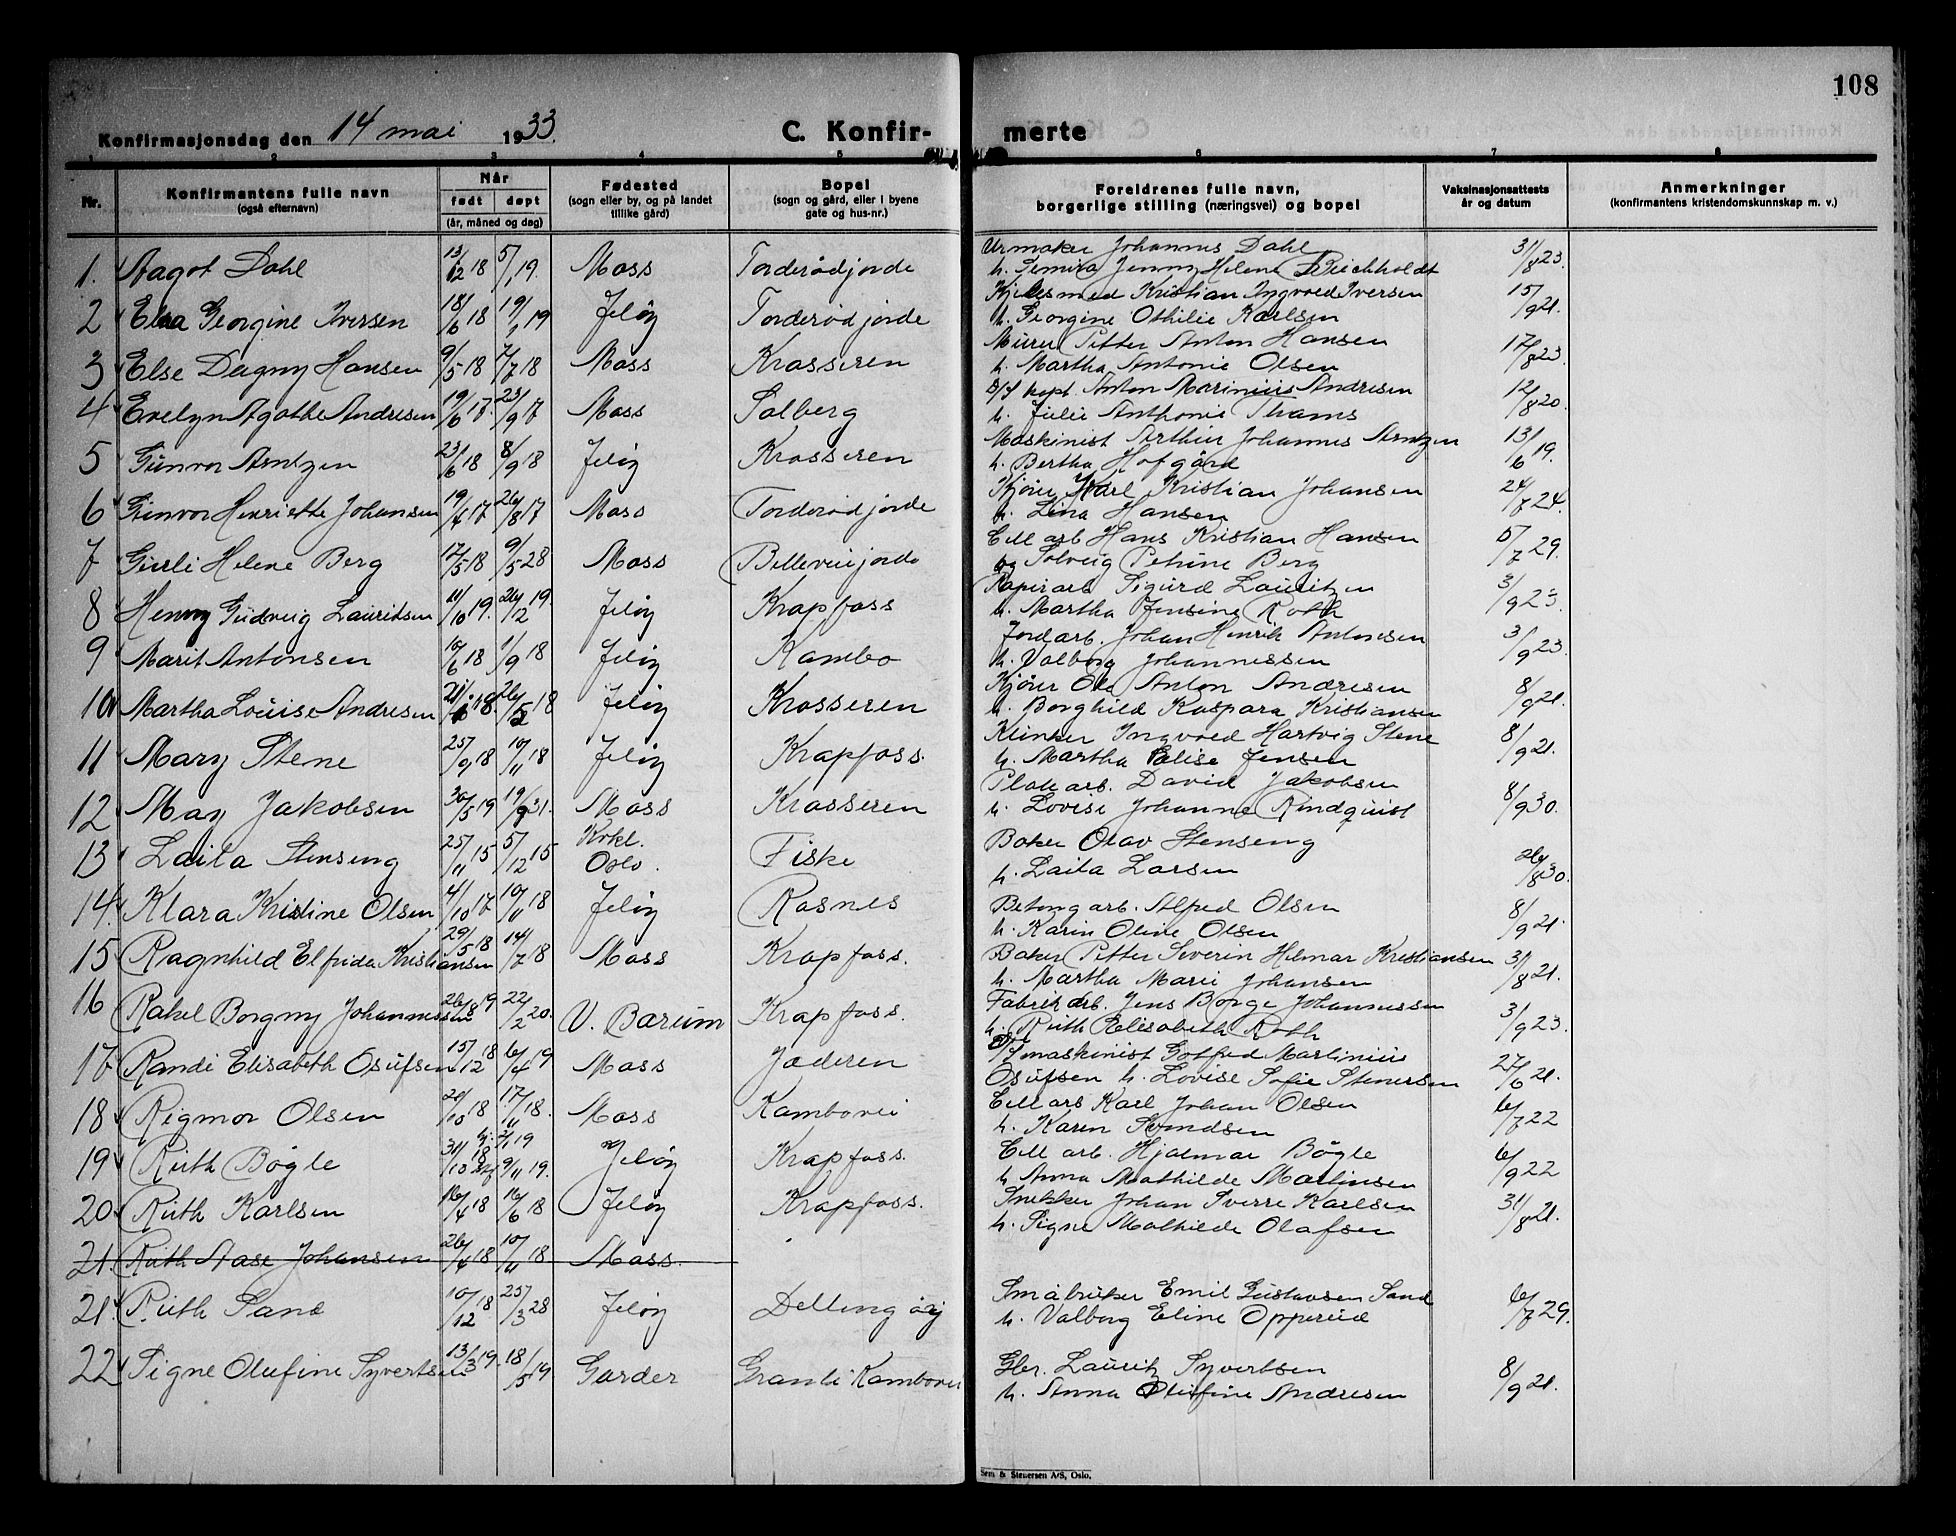 108
Konfirmasjonsdag den 14 mai 1933.
C. Konfir-merte
1 2 3 4 5 6 7 8
Nr. Konfirmantens fulle navn (også efternavn) Når født døpt (år, måned og dag) Fødested (sogn eller by, og på landet tillike gård) Bopel (sogn og gård, eller i byene gate og hus-nr.) Foreldrenes fulle navn, borgerlige stilling (næringsvei) og bopel Vaksinasjonsattests år og datum Anmerkninger (konfirmantens kristendomskunnskap m. v.)
1. Aagot Dahl 13/12 18 5/1 19. Moss Torderødjorde Urmaker Johannes Dahl 31/8 23.
h. Jenny Helene Reichholdt
2 Elsa Georgine Iversen 18/6 18 19/1 19 Jeløy Torderødjorde Kjelesmed Kristian Ingvald Iversen 15/9 21.
h. Georgine Othilie Karlsen
3 Else Dagny Hansen 9/5 18 7/7 18 Moss Krosseren Murer Petter Anton Hansen 17/8 23.
h. Martha Antonie Olsen
4 Evelyn Agathe Andresen 19/6 17. 23/9 17 Moss Solberg D/S kapt. Anton Marinius Andresen 12/8 20.
h. Julie Anthonie Thams
5 Gunvor Arntzen 23/6 18 8/9 18 Jeløy Krosseren Maskinist Arthur Johannes Arntzen 13/6 19.
h. Bertha Hofgård
6 Gunvor Henriette Johansen 19/4 17 26/8 17 Moss Torderødjorde Kjører Karl Kristian Johansen 24/7 24.
h. Lina Hansen
7 Gurli Helene Berg 17/5 18 9/5 28 Moss Bellevuejorde Cell arb Hans Kristian Hansen 5/7 29.
og Solveig Petrine Berg
8 Henny Gudveig Lauritsen 11/10 19. 26/12 19. Jeløy Krapfoss Papirarb Sigurd Lauritzen 3/9 23.
h. Martha Jensine Roth
9 Marit Antonsen 10/6 18 1/9 18 Jeløy Kambo Jordarb. Johan Henrik Antonsen 3/9 23.
h. Valborg Johannessen
10 Martha Louise Andresen 18. 26/5 18 Jeløy Krosseren Kjører Ole Anton Andresen 8/9 21.
h. Borghild Kaspara Kristiansen
11 Mary Stene 25/9 18 10/11 18 Jeløy Krapfoss. Klinker Ingvald Hartvig Stene 8/9 21.
h. Martha Elise Jensen
12 May Jakobsen 30/5 19 19/9 31. Moss Krosseren Platearb. David Jakobsen 8/9 30.
h. Lovise Johanne Rindquist
13 Laila Stenseng 25/11 15 5/12 15 Krkl. Oslo. Fiske Baker Olav Stenseng 26/8 30.
h. Laila Larsen
14. Klara Kristine Olsen 4/10 17 10/11 18 Jeløy Rosnes Betongarb. Alfred Olsen 8/9 21.
h. Karin Oline Olsen
15 Ragnhild Elfrida Kristiansen 29/5 18 14/7 18 Moss Krapfoss. Baker Petter Severin Helmar Kristiansen 31/8 21.
h. Martha Marie Johansen
16 Rakel Borgny Johannessen 26/8 19 22/2 20. V. Bærum Krapfoss. Fabrikarb. Jens Borge Johannessen 3/9 23.
h. Ruth Elisabeth Roth
17 Randi Elisabeth Osufsen 15/12 18 6/4 19 Moss Jæderen D/S maskinist Gotfred Martinius 27/6 21.
Osufsen h. Lovise Sofie Stenersen
18 Rigmor Olsen 20/10 18 17/11 18. Moss Kambovei Cell arb Karl Johan Olsen 6/7 22
h. Karen Svendsen
19 Ruth Bøgle 31/10 18 9/11 19. Jeløy Krapfoss. Cell arb. Hjalmar Bøgle 6/9 22
h Anna Mathilde Martinsen
20 Ruth Karlsen 16/4 18 16/6 18 Jeløy Krapfoss. Snekker Johan Sverre Karlsen 31/8 21.
h. Signe Mathilde Olafsen
21. Ruth Aase Johansen 26/4 18 10/11 18 Moss.
21. Ruth Sand 10/12 18 25/3 28 Jeløy Delling Småbruker Emil Gustavsen Sand 6/7 29.
h. Valborg Eline Opperud
22 Signe Olufine Syvertsen 13/3 19. 18/5 19 Garder Granli Kambovei Gbr. Lauritz Syvertsen 8/9 21.
h. Anna Olufine Andresen
Sem & Stenersen A/S, Oslo.